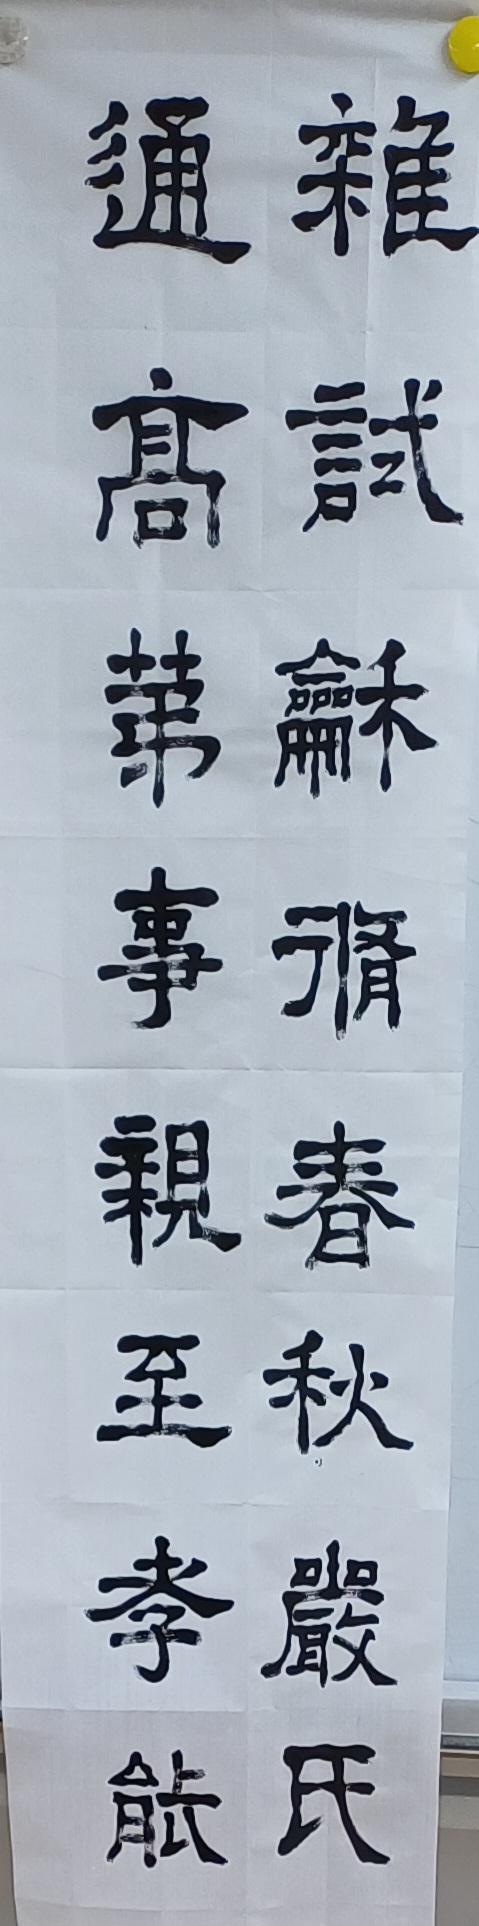 雜試龢脩春秋嚴氏
通高第事親至孝能